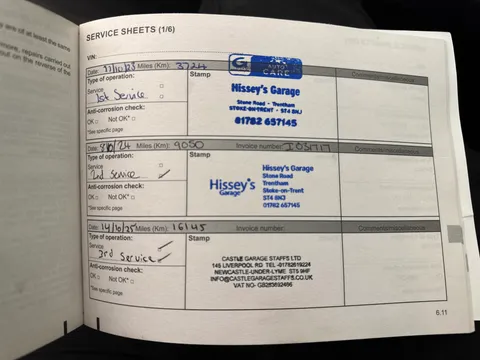 ay are of at least the same
more, repairs carried out
out on the reverse of the
SERVICE SHEETS (1/6)
VIN:
Miles (Km): 3724
Type of operation:
Stamp
AUTO
CARE
Service
1st Service
Hissey's Garage
Stone Road · Trentham
STOKE-ON-TRENT · ST4 8NJ
01782 657145
Anti-corrosion check:
OK □ Not OK* □
*See specific page
Date: Miles (Km): 9050 Invoice number:
Type of operation:
Stamp
Service
2nd Service ✓
Hissey's
Garage
Hissey's Garage
Stone Road
Trentham
Stoke-on-Trent
ST4 8NJ
01782 657145
Anti-corrosion check:
OK □ Not OK* □
*See specific page
Date: 14/10/25 Miles (Km): 16145 Invoice number:
Type of operation: ✓
Stamp
Service
3rd Service ✓
CASTLE GARAGE STAFFS LTD
145 LIVERPOOL RD TEL -01782619224
NEWCASTLE-UNDER-LYME ST5 9HF
INFO@CASTLEGARAGESTAFFS.CO.UK
Anti-corrosion check:
OK □ Not OK* □
*See specific page
6.11